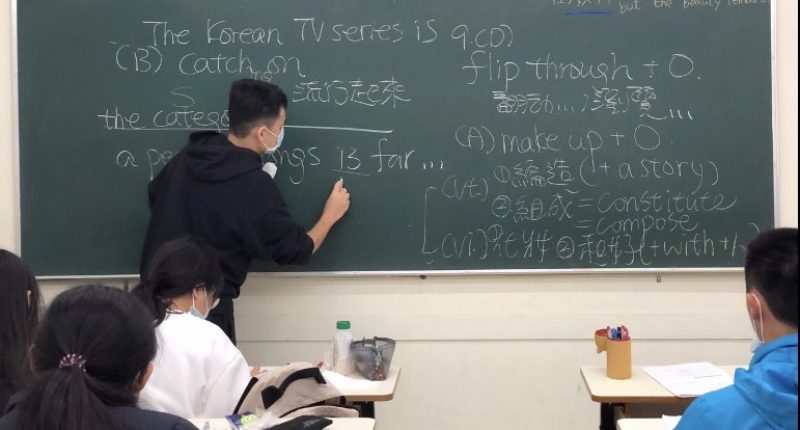 The Korean TV series is
(B) catch on
S
流行起來
the catego
a pe ngs is far...
but the beauty remains
9.(D)
flip through + O.
翻動...,瀏覽...
(A) make up + O
(vt.) ①編造(+a story)
②組成=constitute
=compose
(vi.)①化妝②和好(+with+人)